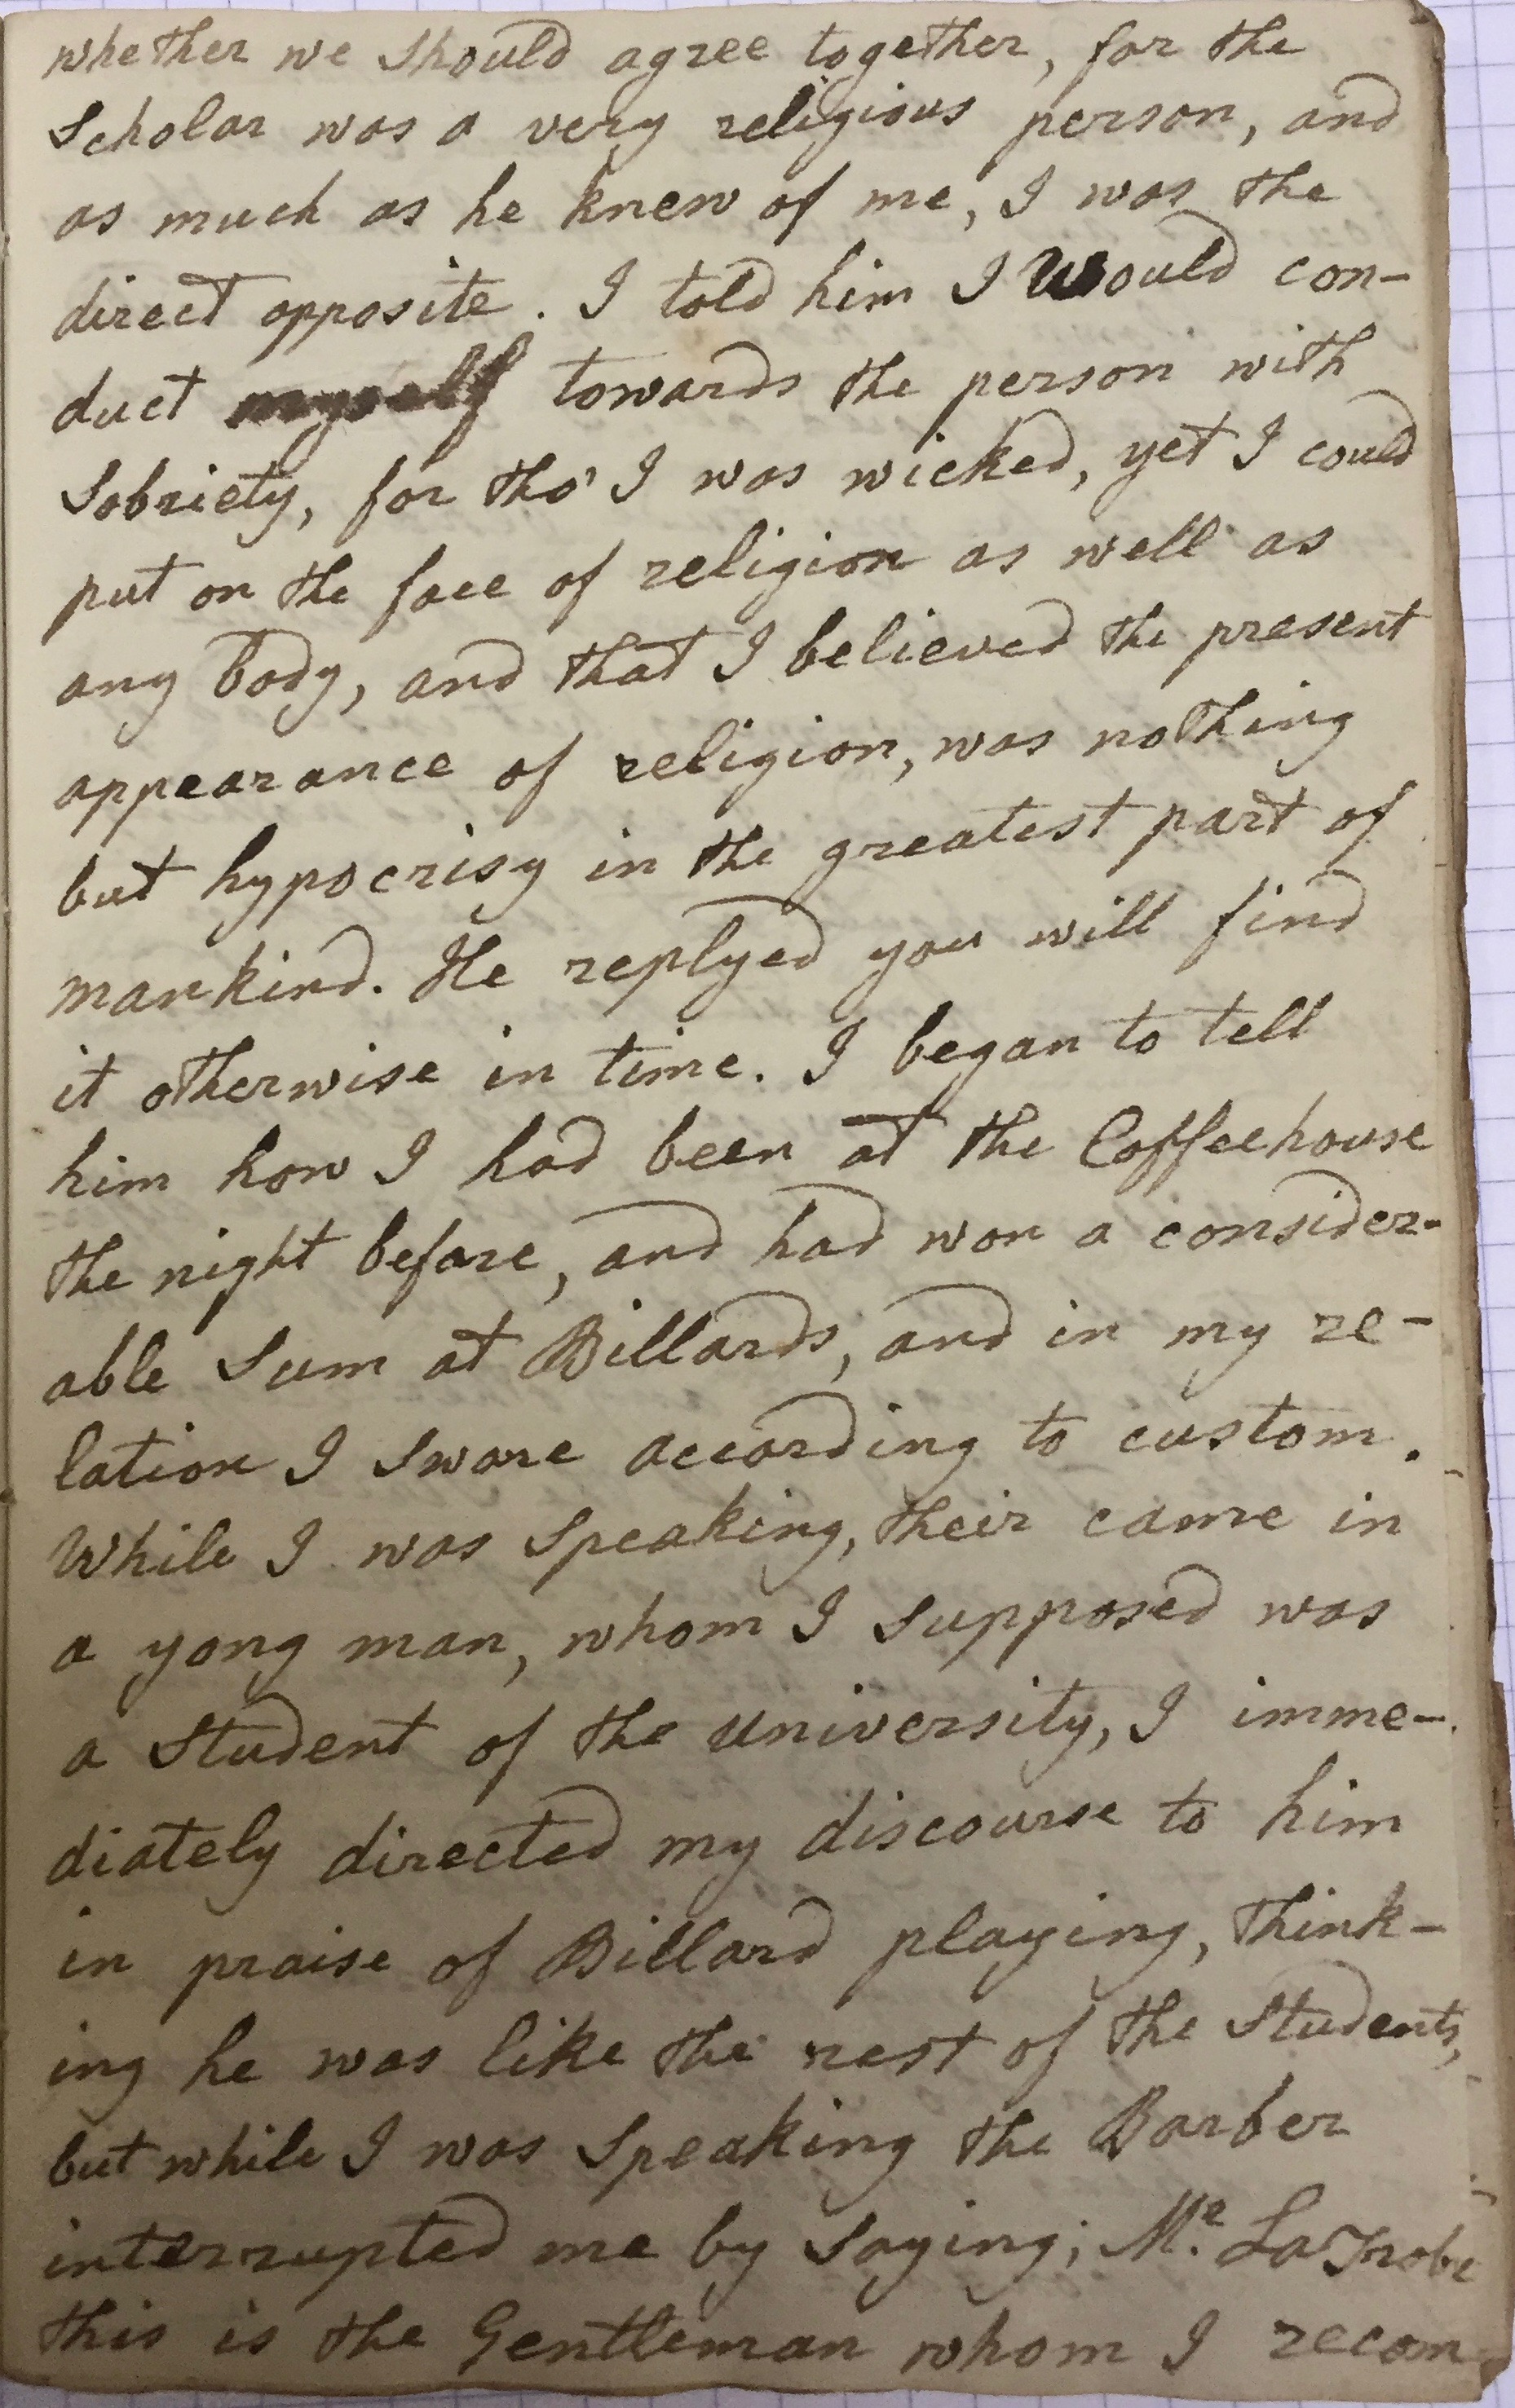 whether we should agree together, for the
Scholar was a very religious person, and
as much as he knew of me, I was the
direct opposite. I told him I would con-
duct myself towards the person with
Sobriety, for tho' I was wicked, yet I could
put on the face of religion as well as
any body, and that I believed the present
appearance of religion, was nothing
but hypocrisy in the greatest part of
mankind. He replyed you will find
it otherwise in time. I began to tell
him how I had been at the Coffeehouse
the night before, and had won a consider-
able Sum at Billards, and in my re-
lation I swore according to custom.
While I was Speaking, their came in
a yong man, whom I supposed was
a Student of the University, I imme-
diately directed my discourse to him
in praise of Billard playing, think-
ing he was like the rest of the Students,
but while I was Speaking the Barber
interrupted me by saying; Mr. LaTrobe
this is the Gentleman whom I recom-